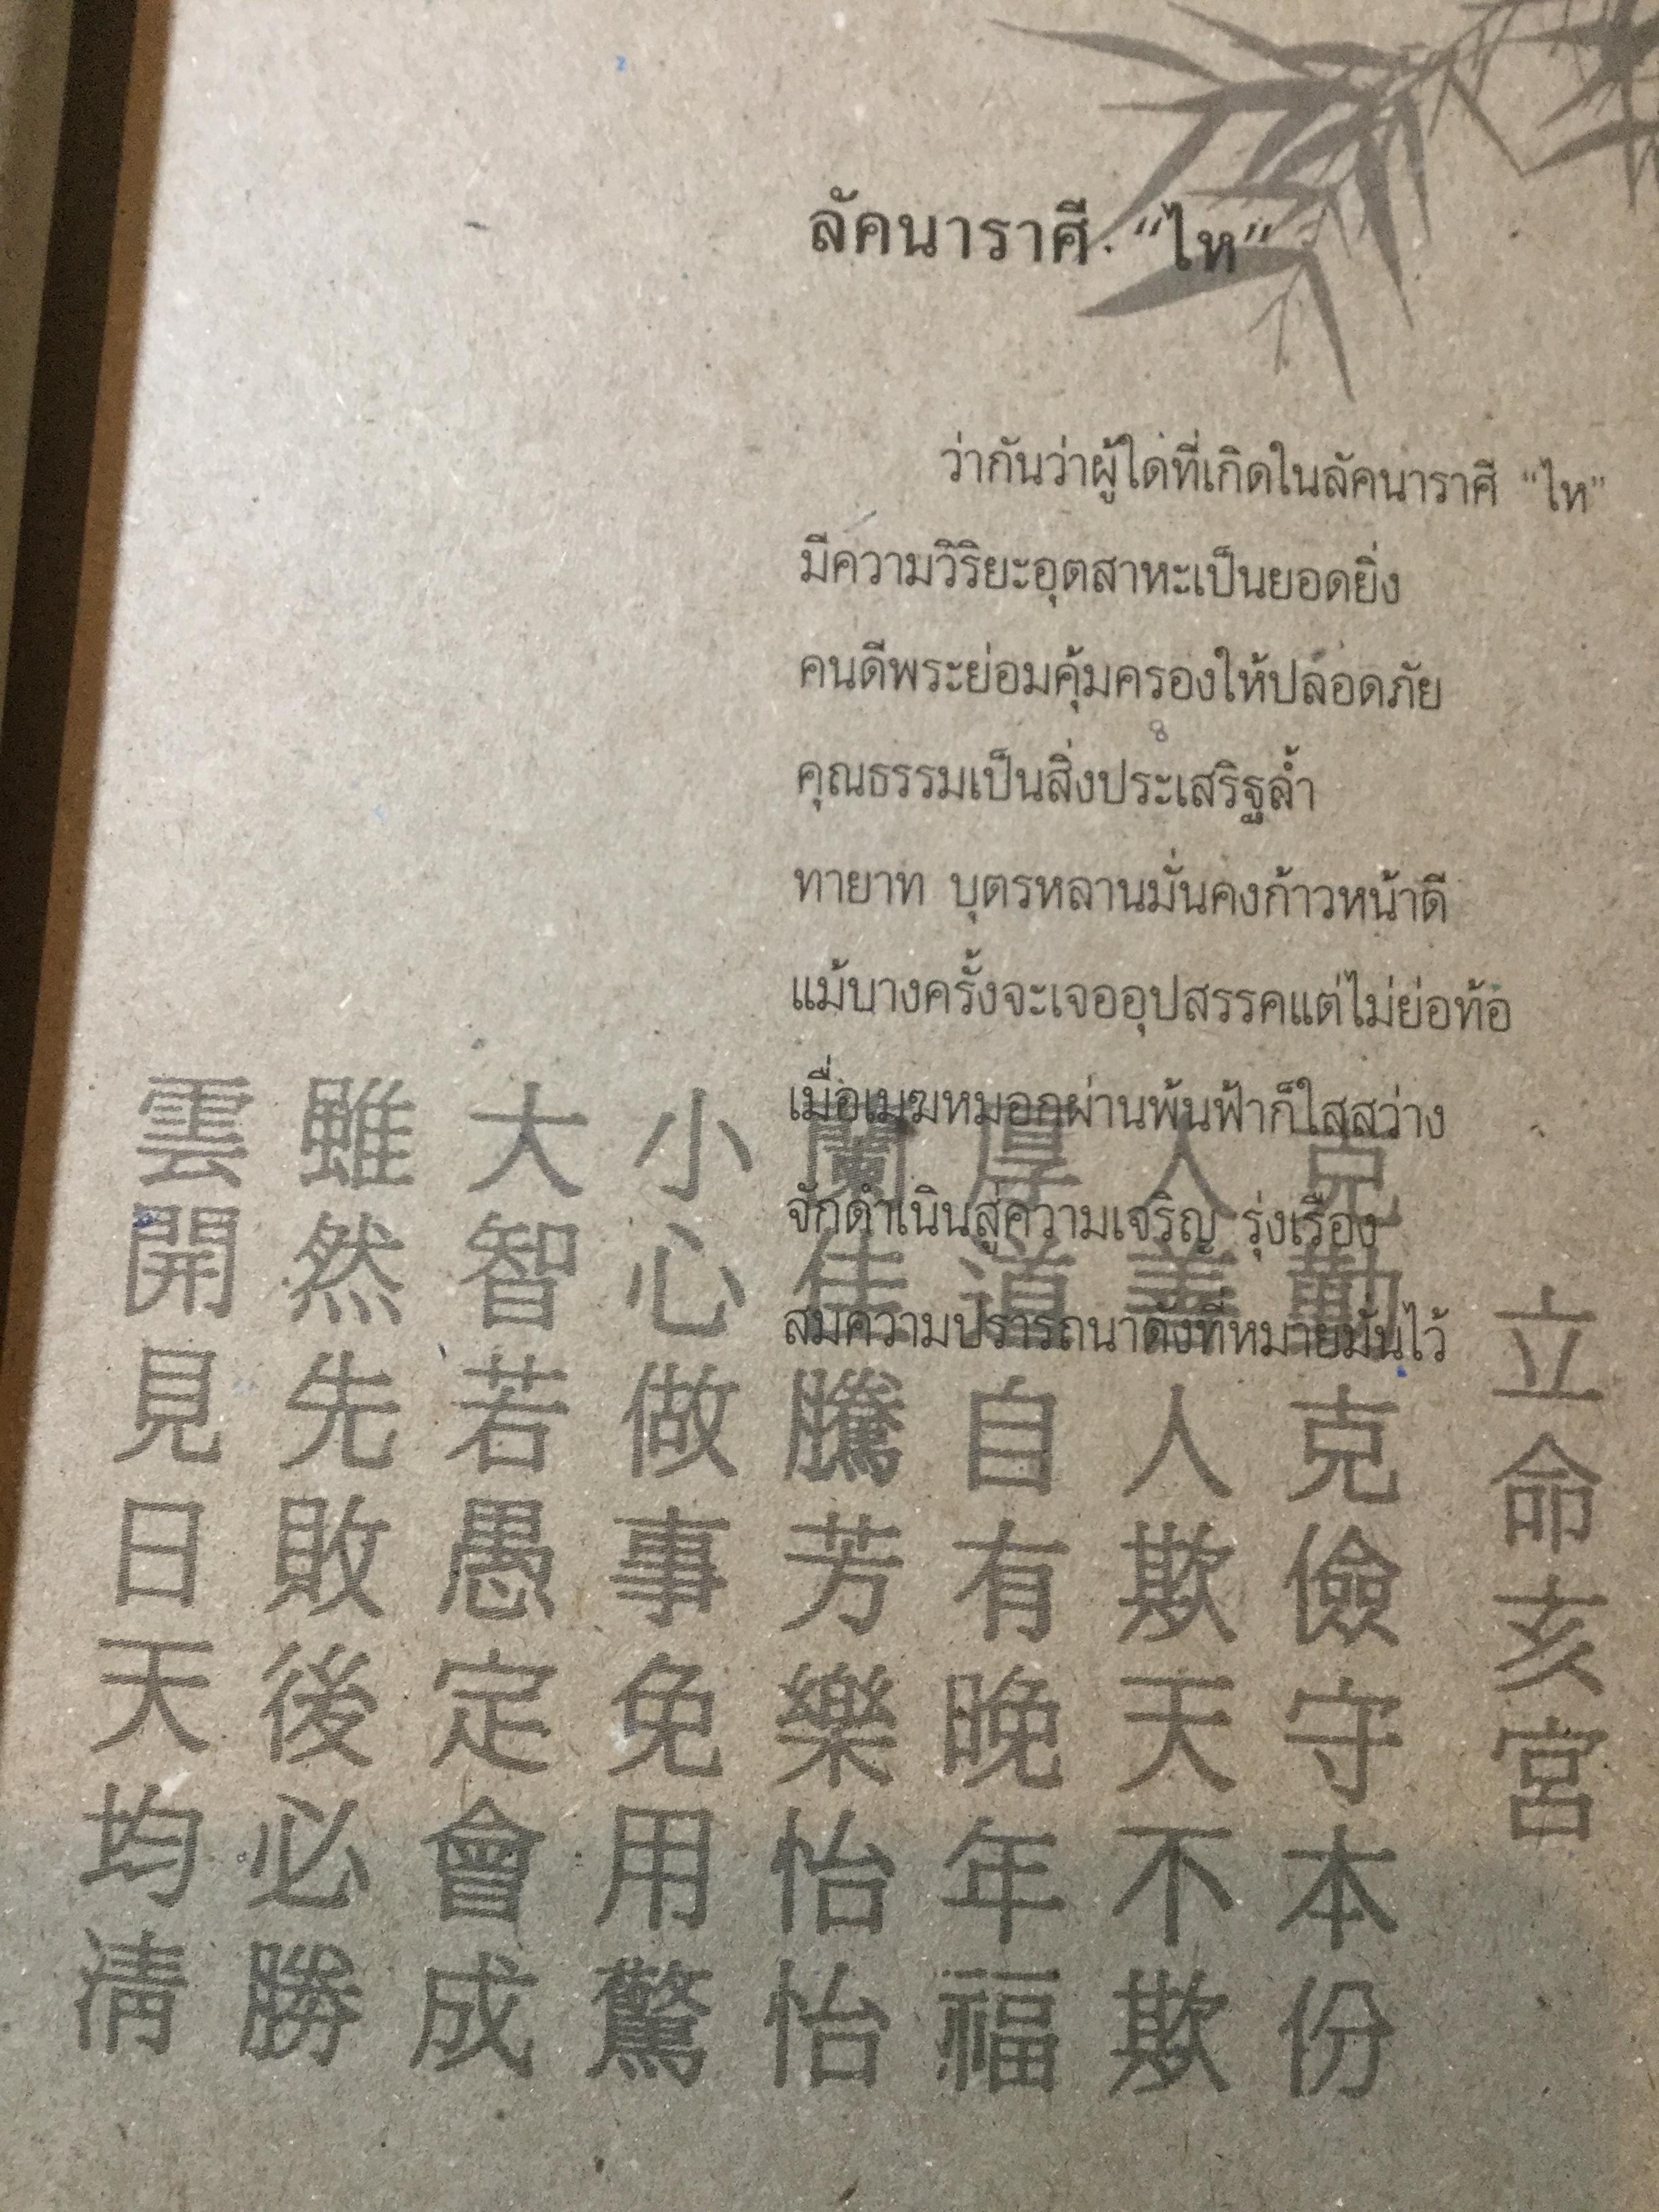 ลัคนาราศี "ไห"
ว่ากันว่าผู้ใดที่เกิดในลัคนาราศี "ไห"
มีความวิริยะอุตสาหะเป็นยอดยิ่ง
คนดีพระย่อมคุ้มครองให้ปลอดภัย
คุณธรรมเป็นสิ่งประเสริฐล้ำ
ทายาท บุตรหลานมั่นคงก้าวหน้าดี
แม้บางครั้งจะเจออุปสรรคแต่ไม่ย่อท้อ
เมื่อเมฆหมอกผ่านพ้นฟ้าก็ใสสว่าง
จักดำเนินสู่ความเจริญ รุ่งเรือง
สมความปรารถนาดั่งที่หมายมั่นไว้
立命亥宮
克勤克儉守本份
人善人欺天不欺
厚道自有晚年福
蘭佳騰芳樂怡怡
小心做事免用驚
大智若愚定會成
雖然先敗後必勝
雲開見日天均清